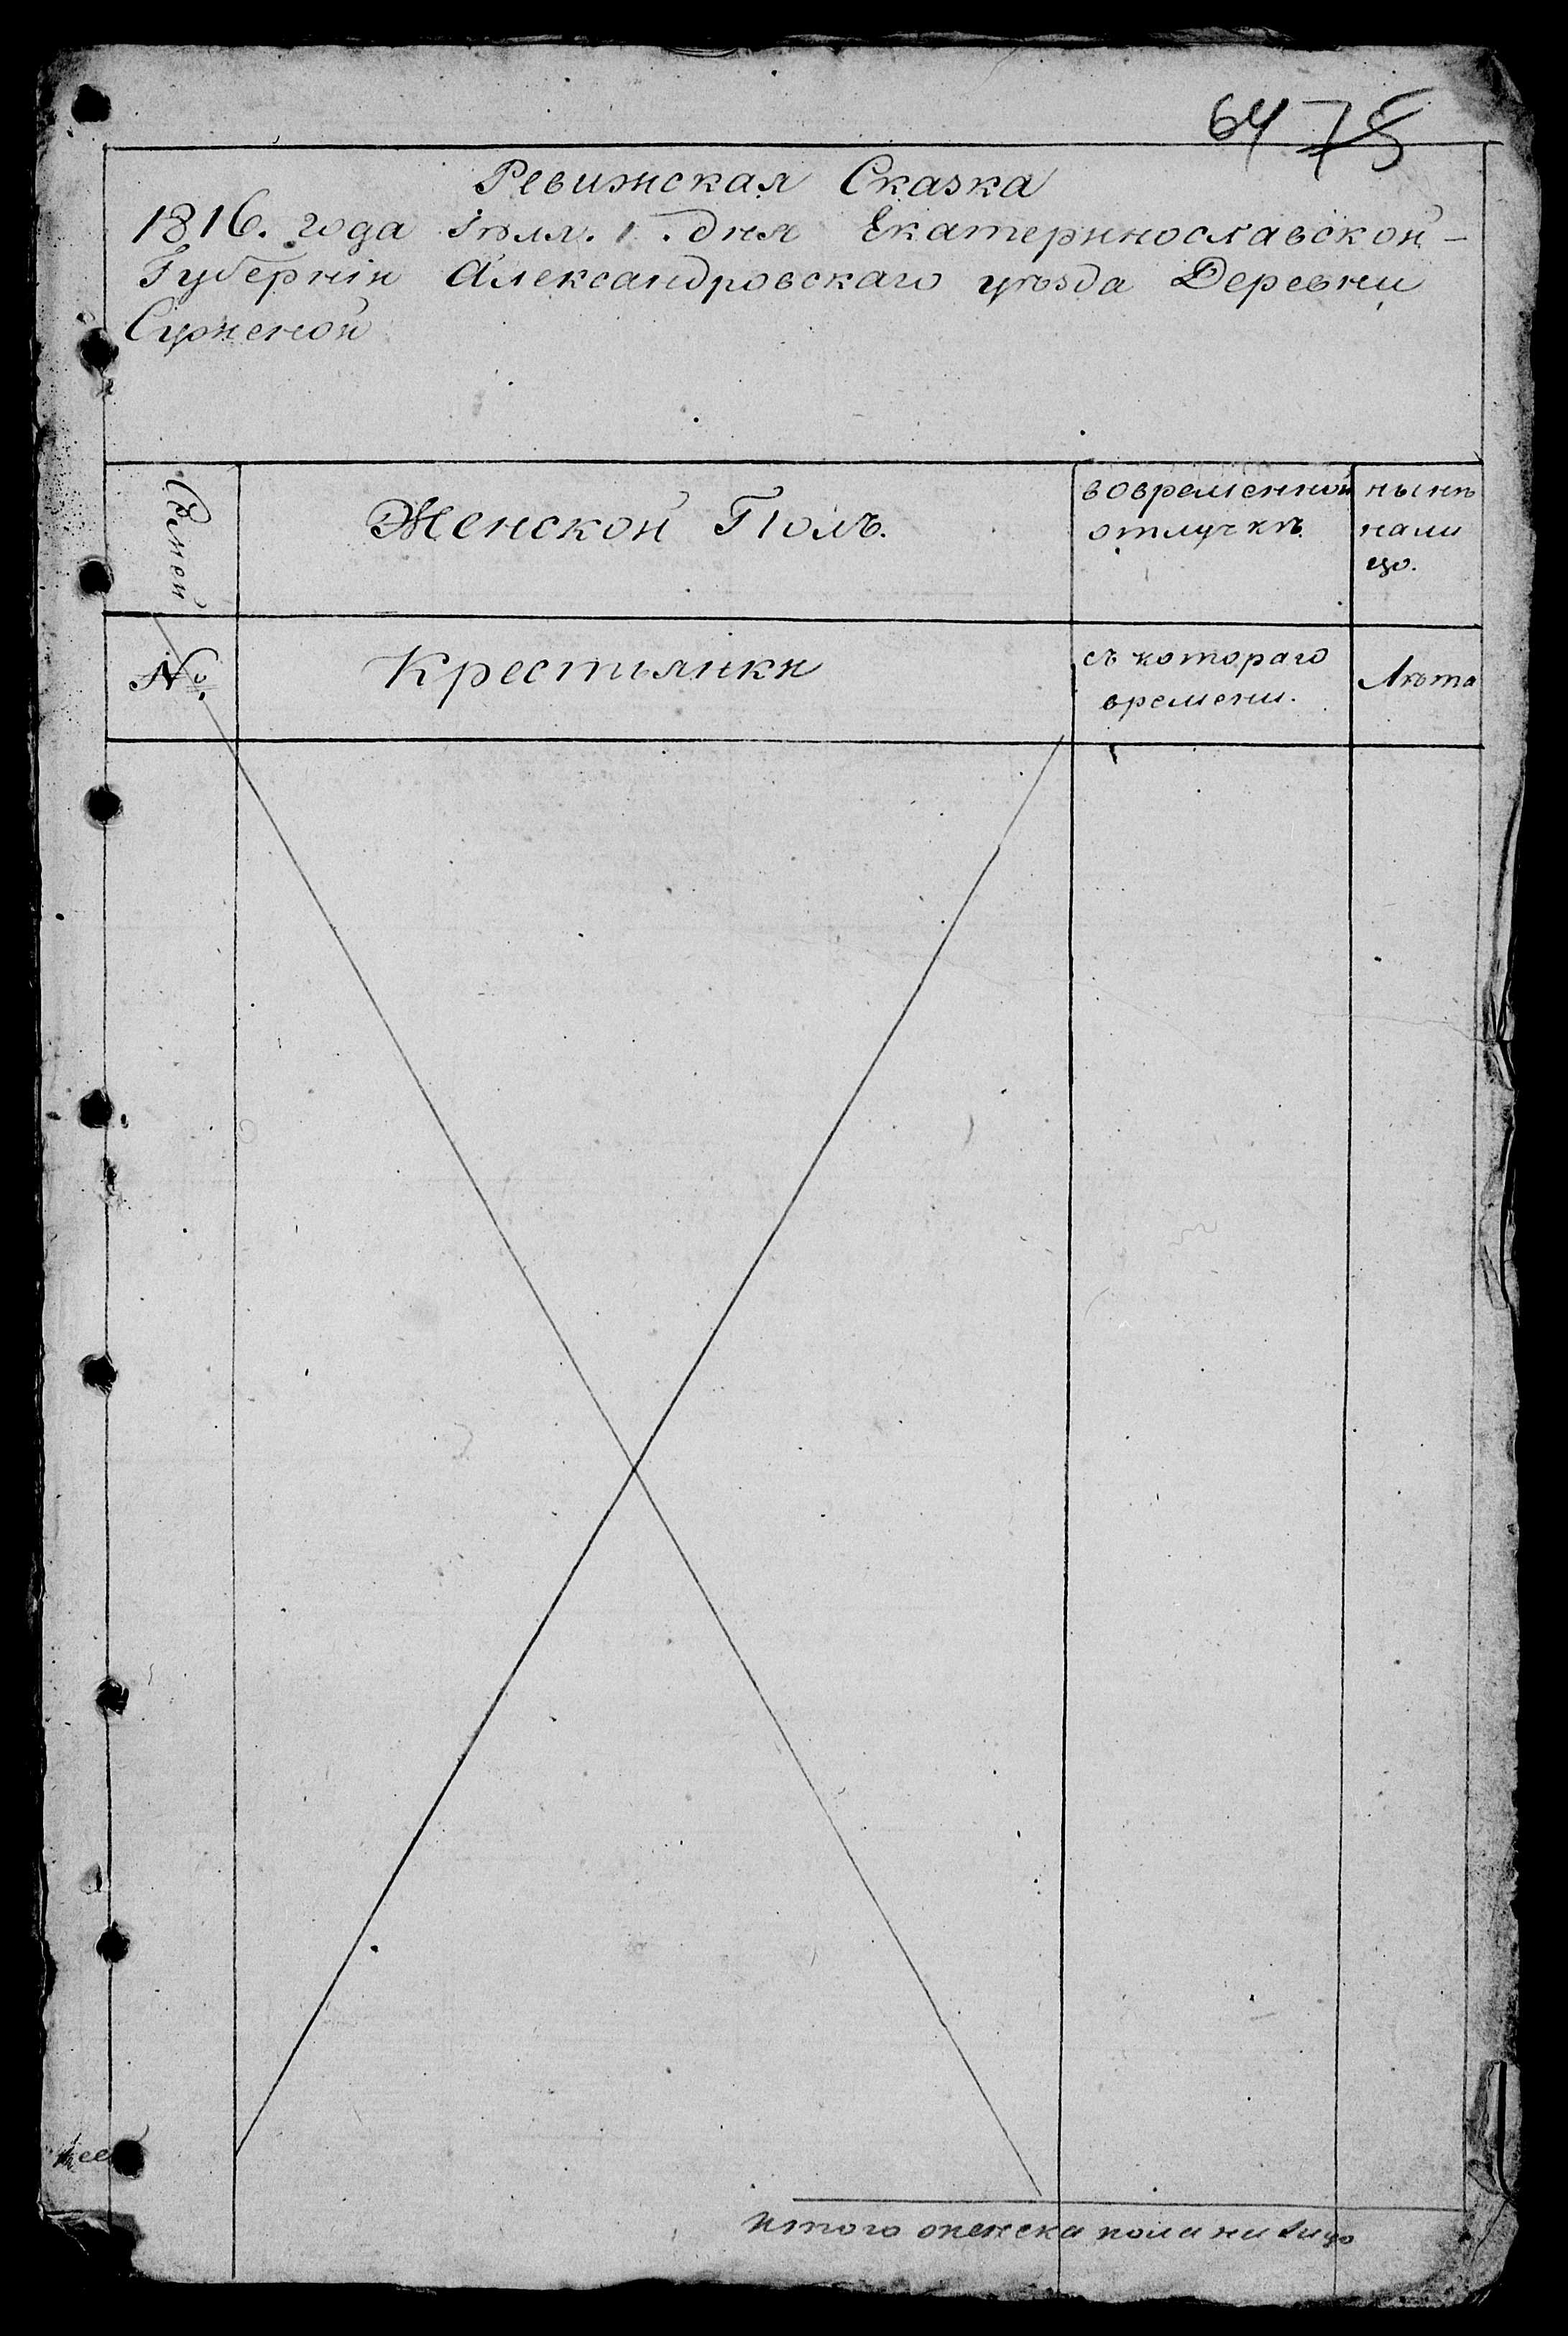 64 75
Ревижская Сказка
1816. года Іюля. 1. дня Екатеринославской –
Губерніи Александровскаго уѣзда Деревни
Суженой
Семей
Женской Полъ.
вовременной
отлучкѣ.
нынѣ
нали
цо.
№.
Крестьянки
съ котораго
времени.
Лѣта
итого женска пола на лицо